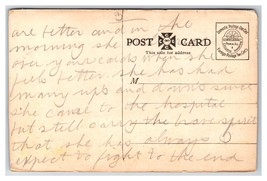 are better and in the
morning she
over your cards when she
feels better. She has had
many ups and downs since
she came to the hospital
but still carry the brave spirit
that she has always
expect to fight to the end
POST CARD
This side for address
M